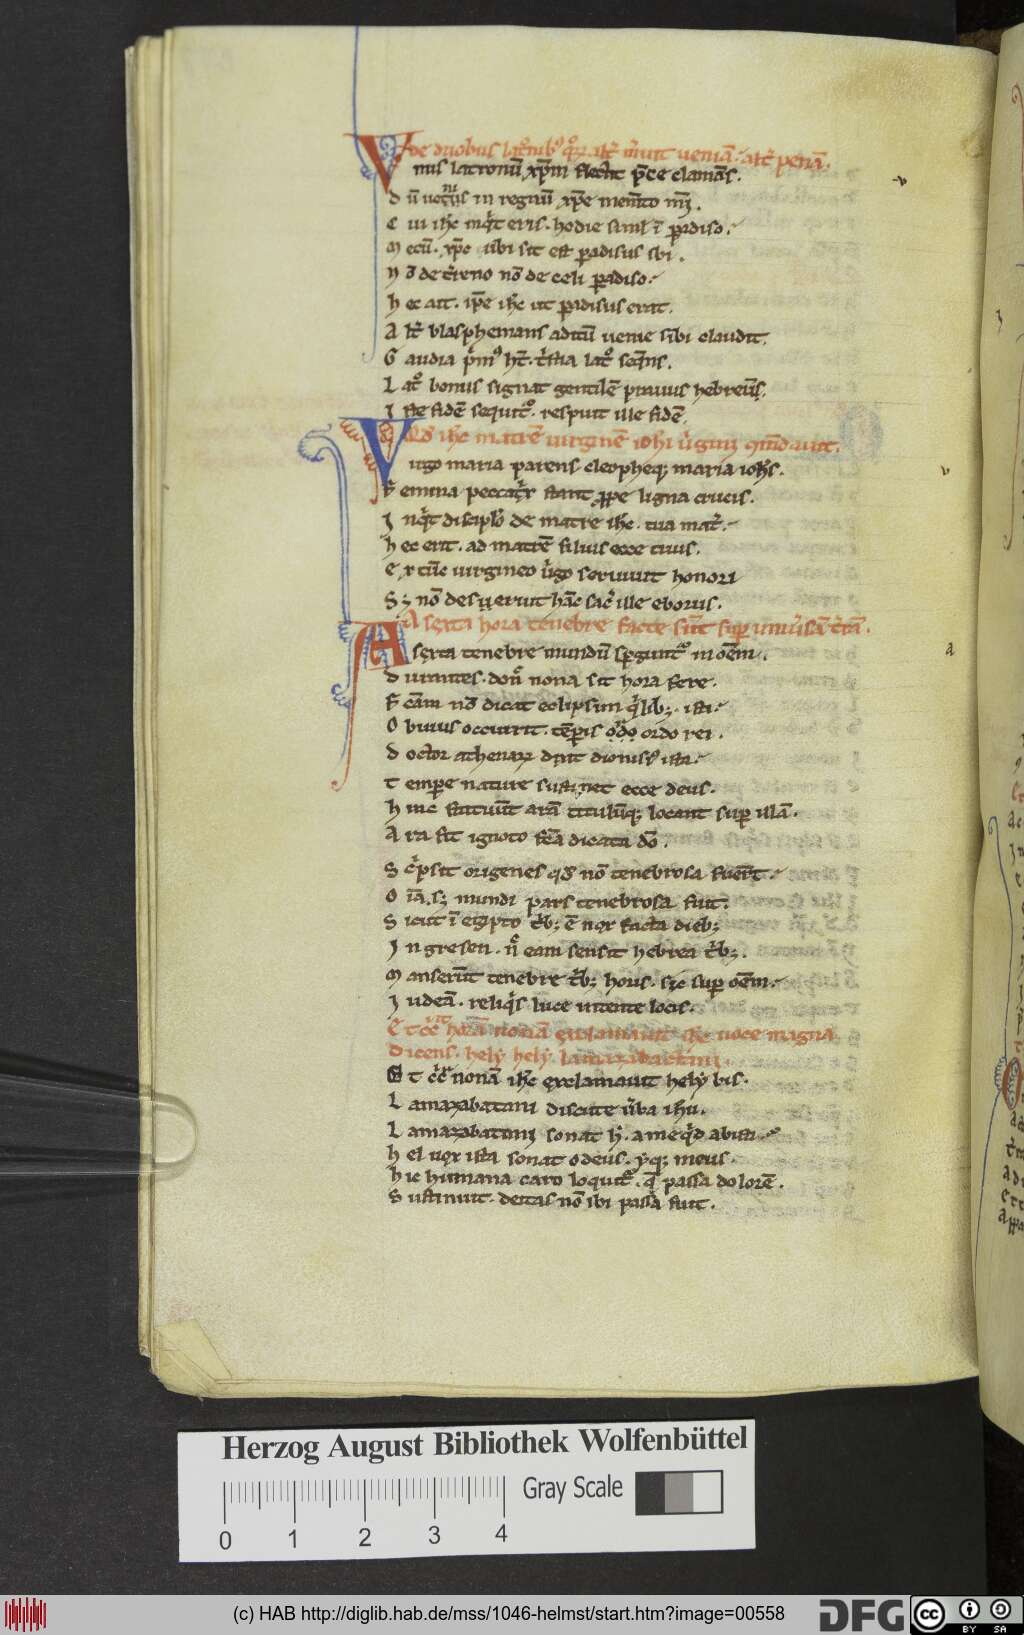 de duobus latͦnibꝰ qͦꝝ alt̾ m̾uit ueniā. alt̾ penā.
Vnus latronū xp̄m flectit p̄ce clamās.
Dū uet̾is in regnū xp̄e mem̄to mī.
Cui ih̄c inqͥt eris. hodie siml̾ ī paradiso.
Mecū. xp̄c ubi sit est paradisus ibi.
Nō de t̾reno nō de celi paradiso.
Hec ait. ip̄e ih̄c ut paradisus erat.
Alt̾ blasphemans aditū uenie sibi claudit.
Gaudia pͥmꝰ ht̄. tͥstia latͦ seq̄ns.
Latͦ bonus signat gentilē prauus hebreūs.
Iste fidē sequit᷑. respuit ille fidē.
Qd̾ ih̄c matrē uirginē ioh̄i uͥgini m̄dauit.
Virgo maria parens cleopheqꝫ maria ioh̄s.
Femina peccat̾x stant ꝓpe ligna crucis.
Inqͥt discipl̾o de matre ih̄c. tua mat̾.
Hec erit. ad matrē filius ecce tuus.
Ex tūc uirgineo uͥgo seruiuit honori
Sꝫ nō deseruerunt hāc sac̾ ille eborus.
A sexta hora tenebre facte sūt sup̱ uniu̾sā t̾rā.
A sexta tenebre mundū sꝑgunt᷑ in oēm.
Diuinites. don̾ nona sit hora fere.
F c̄am nō dicat eclipsim qͥlibꝫ. isti.
Obuius occurrit. tēꝑis ordo rei.
Doctor athenaꝝ dixit dionisiꝰ ista.
Tempore nature sustinet ecce deus.
Hinc statuūt arā titulūqꝫ locant sup̱ illā.
Ara sit ignoto sc̄a dicata dō.
Scͥpsit origenes qd̾ nō tenebrosa fuer̄t.
Oīa. sꝫ mundi pars tenebrosa fuit.
Sicut ī egipto tͥbꝫ ē nox facta diebꝫ
In gresen. n̄ eam sensit hebrea tͥbꝫ.
Manserūt tenebre tͥbꝫ horis. sic sup̱ oēm.
Iudeā. reliqͥs luce nitente locis.
Et cͥc̄ horā nonā exclamauit ih̄c uoce magna
dicens. hely hely. lamazabactani.
Et cͥc̄ nonā ih̄c exclamauit hely bis.
Lamazabatani discute u̾ba ih̄u.
Lamazabatani sonat h̾. a me qͥd abisti.
Hel uox ista sonat o deus. yqꝫ meus.
Hic humana caro loquit᷑. q̄ passa dolorē.
Sustinuit. deitas nō ibi passa fuit.
Herzog August Bibliothek Wolfenbüttel
Gray Scale
0 1 2 3 4
(c) HAB http://diglib.hab.de/mss/1046-helmst/start.htm?image=00558
DFG
cc BY SA